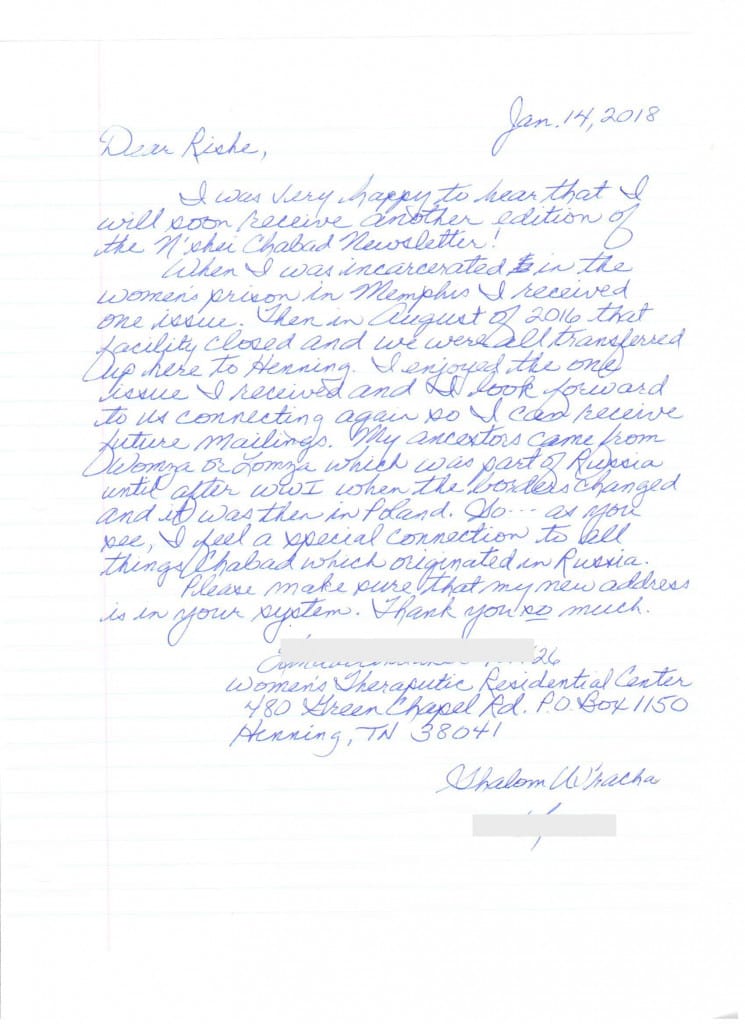 Jan. 14, 2018
Dear Rishe,
I was very happy to hear that I
will soon receive another edition of
the N'shei Chabad Newsletter!
When I was incarcerated in the
women's prison in Memphis I received
one issue. Then in August of 2016 that
facility closed and we were all transferred
up here to Henning. I enjoyed the one
issue I received and I look forward
to us connecting again so I can receive
future mailings. My ancestors came from
Womza or Lomza which was part of Russia
until after WWI when the borders changed
and it was then in Poland. So... as you
see, I feel a special connection to all
things Chabad which originated in Russia.
Please make sure that my new address
is in your system. Thank you so much.
26
Women's Theraputic Residential Center
480 Green Chapel Rd. P.O. Box 1150
Henning, TN 38041
Shalom U'Vracha